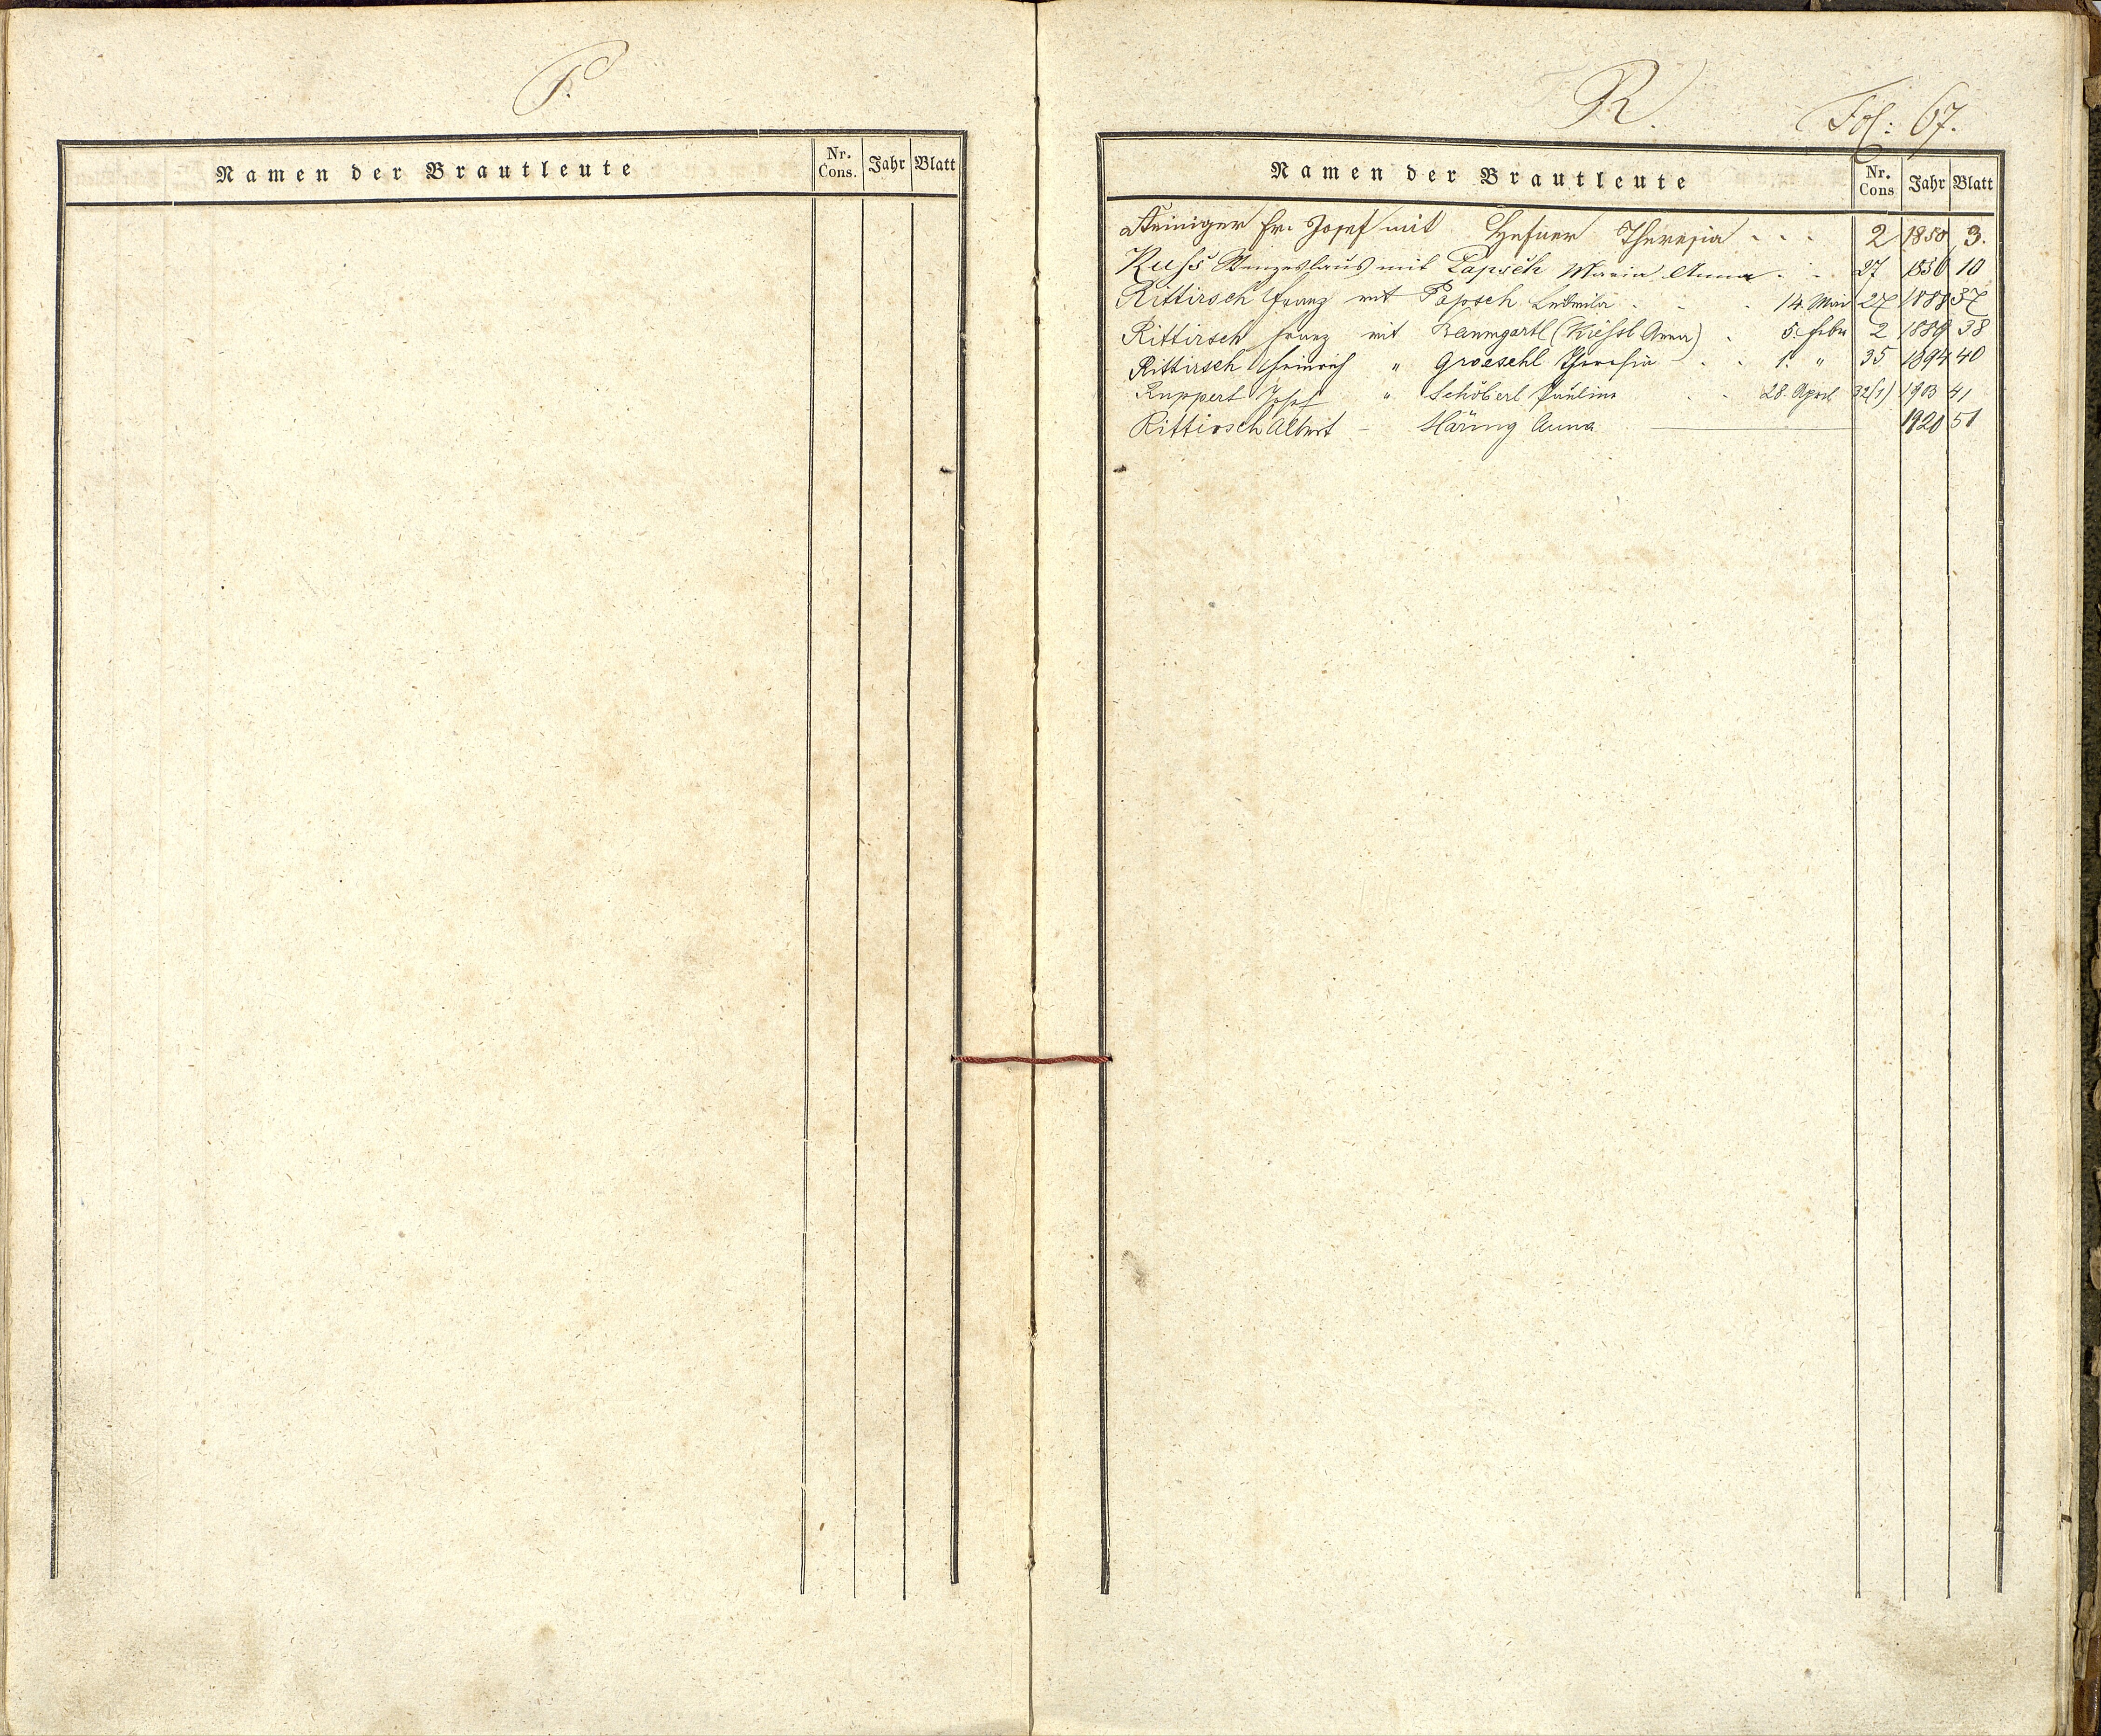 P.
Namen der Brautleute Nr. Cons. Jahr Blatt
R.
Fol: 67.
Namen der Brautleute Nr. Cons Jahr Blatt
Reiniger Fr. Josef mit Theresia 2 1850 3.
Russ Wenzeslaus mit Papsch Maria Anna 27 1856 10
Rittirsch Franz mit Papsch Ludmila 14. Mai 27 1888 37
Rittirsch Franz mit Baumgartl (Kiessl Anna) 5. Feber 2 1889 38
Rittirsch Heinrich " Groeschl Theresia 1. " 35 1894 40
Ruppert Josef " Schöberl Pauline 28. April 32(1) 1903 41
Rittirsch Albert – Häring Anna 1920 51